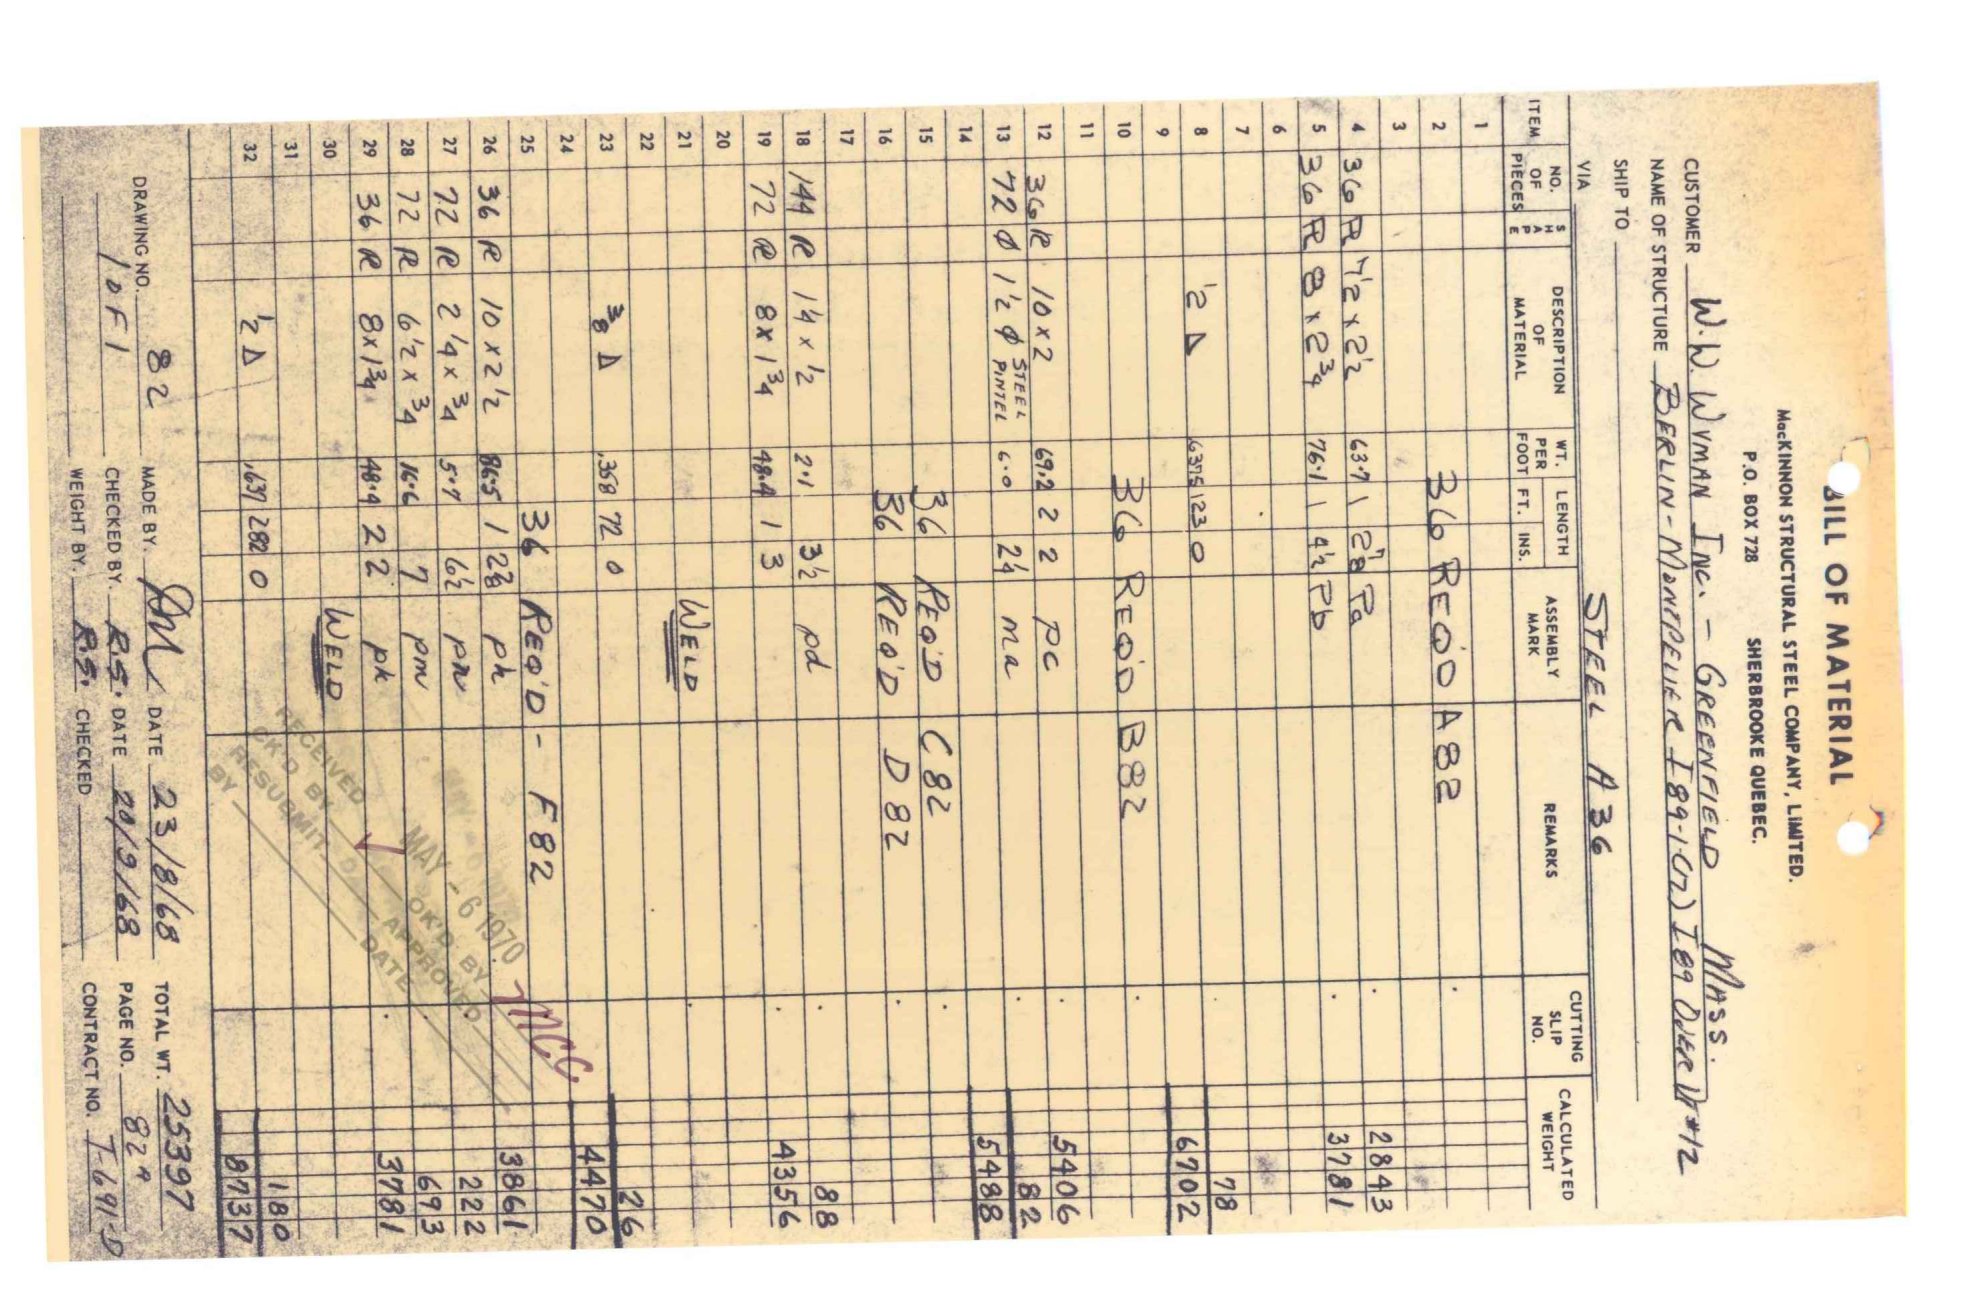 BILL OF MATERIAL
MacKINNON STRUCTURAL STEEL COMPANY, LIMITED.
P.O. BOX 728 SHERBROOKE QUEBEC.
CUSTOMER W.W. WYMAN INC. - GREENFIELD MASS.
NAME OF STRUCTURE BERLIN-MONTPELIER I 89-1-(17) I 89 OVER Dr #12
SHIP TO
VIA STEEL A36
ITEM NO. OF PIECES SHAPE DESCRIPTION OF MATERIAL WT. PER FOOT LENGTH FT. INS. ASSEMBLY MARK REMARKS CUTTING SLIP NO. CALCULATED WEIGHT
1
2 36 REQ'D A82
3
4 36 PL 7 1/2 x 2 1/2 63.7 1 2 7/8 Pa 2843
5 36 PL 8 x 2 3/4 76.1 1 4 1/2 Pb 3781
6
7
8 1/2 △ .6375 123 0 78
9 6702
10 36 REQ'D B82
11
12 36 PL 10 x 2 69.2 2 2 pc 5406
13 72 ϕ 1 1/2 ϕ STEEL PINTEL 6.0 2 1/4 ma 82
14 5488
15 36 REQ'D C82
16 36 REQ'D D82
17
18 144 PL 1 1/4 x 1/2 2.1 3 1/2 pd 88
19 72 PL 8 x 1 3/4 48.4 1 3 4356
20
21 WELD
22
23 3/8 △ .358 72 0 26
24 4470
25 36 REQ'D - F82
26 36 PL 10 x 2 1/2 86.5 1 2 3/8 ph 3861
27 72 PL 2 1/4 x 3/4 5.7 6 1/2 pn 222
28 72 PL 6 1/2 x 3/4 16.6 7 pm 693
29 36 PL 8 x 1 3/4 48.4 2 2 pk 3781
30 WELD
31
32 1/2 △ .637 282 0 180
8737
RECEIVED MAY - 6 1970
CK'D BY OK'D BY MCC.
RESUBMIT. D APPROVED
BY DATE
DRAWING NO. 82 MADE BY. DATE 23/8/68 TOTAL WT. 25397
1 OF 1 CHECKED BY. R.S. DATE 20/9/68 PAGE NO. 82A
WEIGHT BY. R.S. CHECKED CONTRACT NO. T-691-D